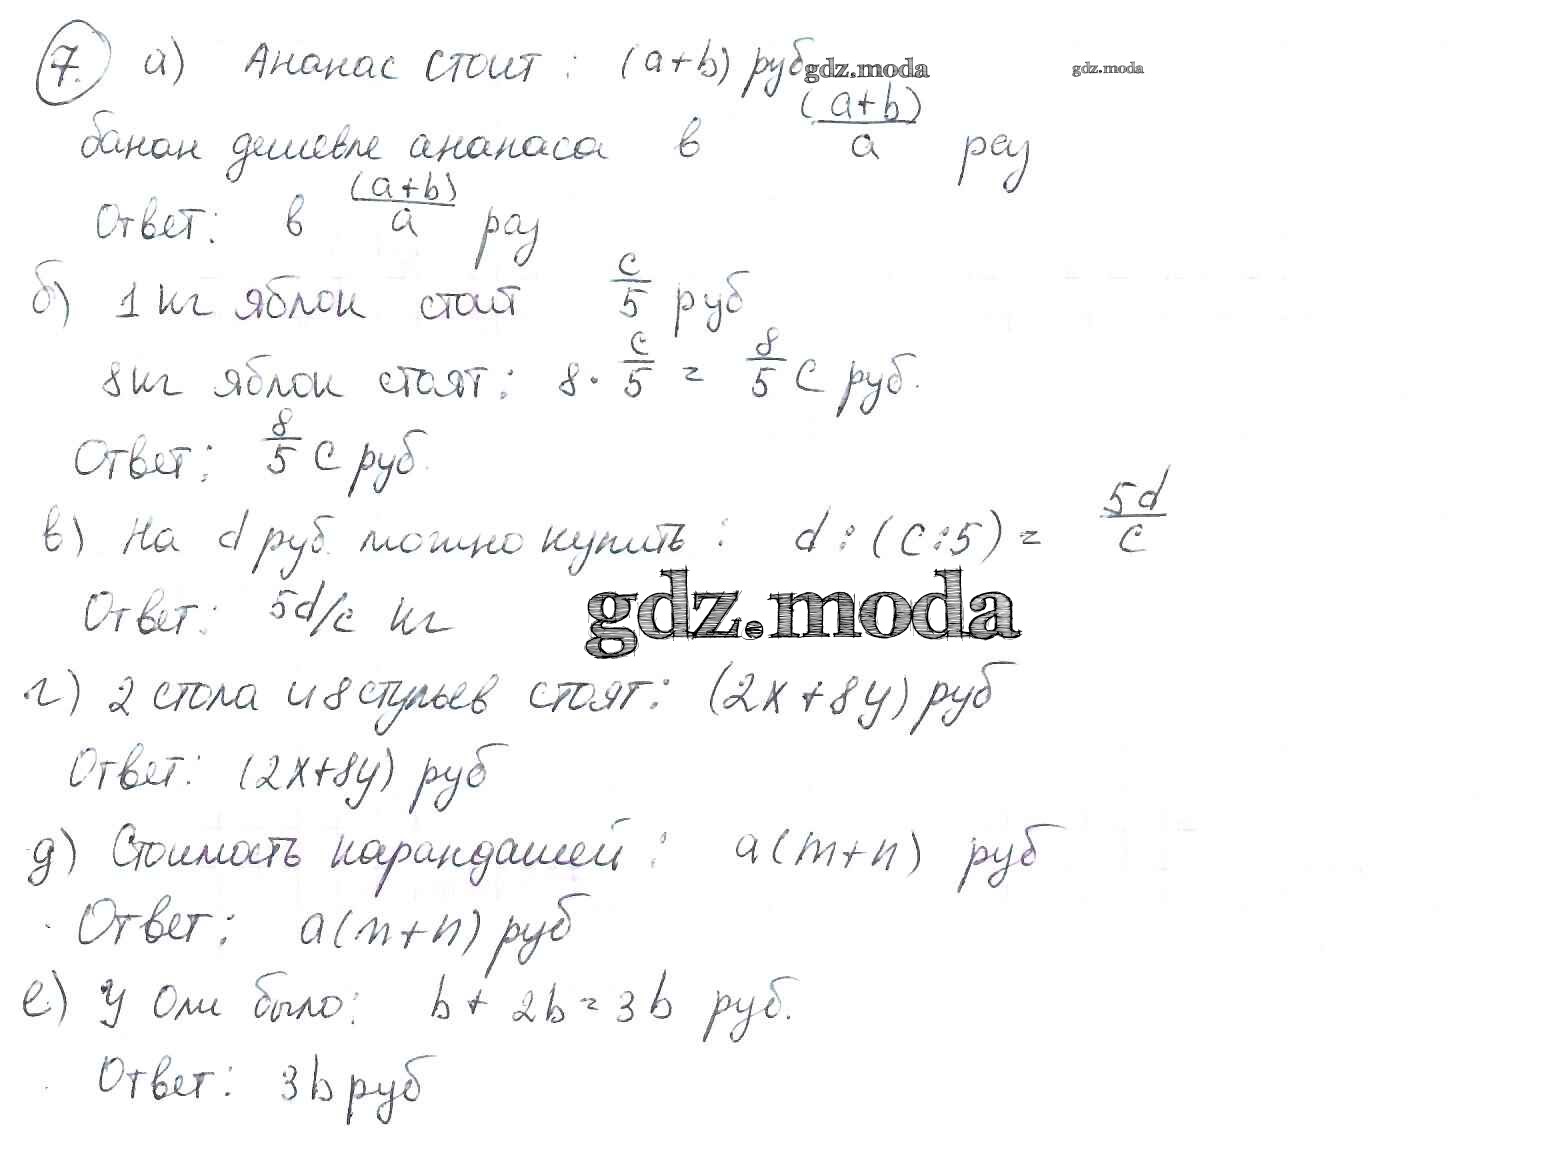 7. а) Ананас стоит: (a+b) руб gdz.moda gdz.moda
банан дешевле ананаса в (a+b)/a раз
Ответ: в (a+b)/a раз
б) 1 кг яблок стоит c/5 руб
8 кг яблок стоят: 8 · c/5 = 8/5 c руб.
Ответ: 8/5 c руб.
в) На d руб. можно купить: d : (c : 5) = 5d/c
Ответ: 5d/c кг
gdz.moda
г) 2 стола и 8 стульев стоят: (2x+8y) руб
Ответ: (2x+8y) руб
д) Стоимость карандашей: a(m+n) руб
Ответ: a(m+n) руб
е) У Оли было: b + 2b = 3b руб.
Ответ: 3b руб